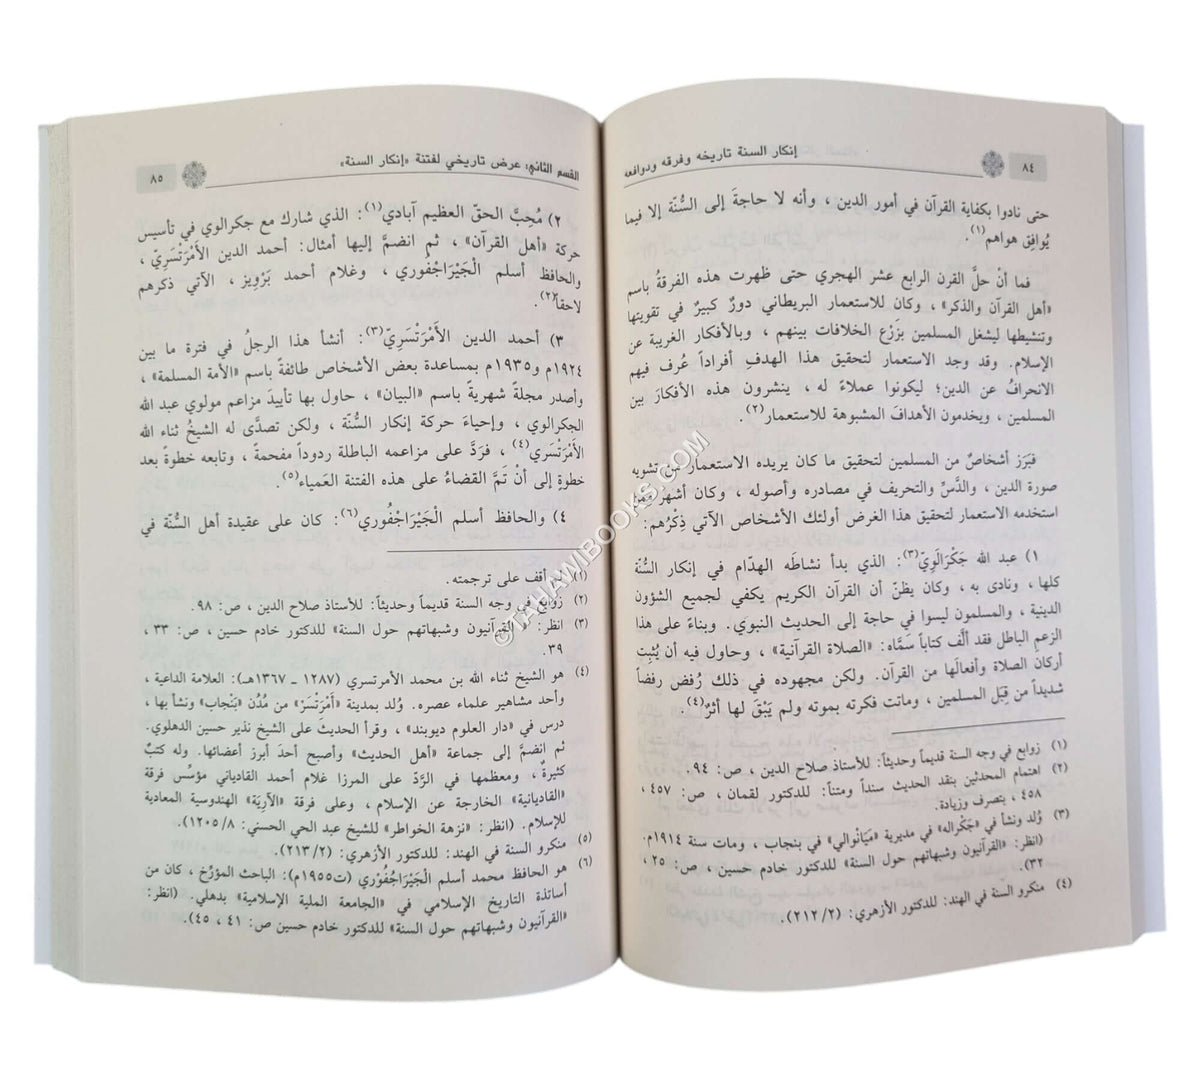 ٨٤
إنكار السنة تاريخه وفرقه ودوافعه
حتى نادوا بكفاية القرآن في أمور الدين ، وأنه لا حاجةَ إلى السُّنّة إلا فيما
يُوافِق هواهم(١).
فما أنْ حلَّ القرن الرابع عشر الهجري حتى ظهرت هذه الفرقةُ باسم
«أهل القرآن والذكر» ، وكان للاستعمار البريطاني دورٌ كبيرٌ في تقويتها
وتنشيطها ليشغل المسلمين بزَرْع الخلافات بينهم ، وبالأفكار الغريبة عن
الإسلام. وقد وجد الاستعمار لتحقيق هذا الهدفِ أفراداً عُرف فيهم
الانحرافُ عن الدين؛ ليكونوا عملاءً له ، ينشرون هذه الأفكارَ بين
المسلمين ، ويخدمون الأهدافَ المشبوهة للاستعمار(٢).
فبَرَز أشخاصٌ من المسلمين لتحقيق ما كان يريده الاستعمار من تشويه
صورة الدين ، والدَّسِّ والتحريف في مصادره وأصوله ، وكان أشهر من
استخدمه الاستعمار لتحقيق هذا الغرض أولئك الأشخاص الآتي ذِكْرُهم:
١) عبد الله جَكْرَالَوِيّ(٣): الذي بدأ نشاطَه الهدّام في إنكار السُّنّة
كلها ، ونادى به ، وكان يظنّ أن القرآن الكريم يكفي لجميع الشؤون
الدينية ، والمسلمون ليسوا في حاجة إلى الحديث النبوي. وبناءً على هذا
الزعمِ الباطل فقد ألَّف كتاباً سَمَّاه: «الصلاة القرآنية» ، وحاول فيه أن يُثبِت
أركان الصلاة وأفعالَها من القرآن. ولكن مجهوده في ذلك رُفض رفضاً
شديداً من قِبَل المسلمين ، وماتت فكرته بموته ولم يَبْقَ لها أثرٌ(٤).
(١) زوابع في وجه السنة قديماً وحديثاً: للأستاذ صلاح الدين ، ص: ٩٤.
(٢) اهتمام المحدثين بنقد الحديث سنداً ومتناً: للدكتور لقمان ، ص: ٤٥٧ ،
٤٥٨ ، بتصرف وزيادة.
(٣) وُلد ونشأ في «جَكْراله» في مديرية «مَيَانْوالي» في بنجاب ، ومات سنة ١٩١٤م.
(انظر: «القرآنيون وشبهاتهم حول السنة» للدكتور خادم حسين ، ص: ٢٥ ،
٣٢).
(٤) منكرو السنة في الهند: للدكتور الأزهري: (٢١٢/٢).
القسم الثاني: عرض تاريخي لفتنة «إنكار السنة»
٨٥
٢) مُحِبّ الحقّ العظيم آبادي(١): الذي شارك مع جكرالوي في تأسيس
حركة «أهل القرآن» ، ثم انضمَّ إليها أمثال: أحمد الدين الأَمْرَتْسَريّ ،
والحافظ أسلم الْجَيْرَاجْفُوري ، وغلام أحمد بَرْوِيز ، الآتي ذكرهم
لاحقاً(٢).
٣) أحمد الدين الأَمْرَتْسَرِيّ(٣): أنشأ هذا الرجلُ في فترة ما بين
١٩٢٤م و١٩٣٥م بمساعدة بعض الأشخاص طائفةً باسم «الأمة المسلمة» ،
وأصدر مجلةً شهريةً باسم «البيان» ، حاول بها تأييدَ مزاعم مولوي عبد الله
الجكرالوي ، وإحياءَ حركة إنكار السُّنّة ، ولكن تصدَّى له الشيخُ ثناء الله
الأَمْرَتْسَري(٤) ، فرَدَّ على مزاعمه الباطلة ردوداً مفحمةً ، وتابعه خطوة بعد
خطوةٍ إلى أنْ تَمَّ القضاءُ على هذه الفتنة العَمياء(٥).
٤) والحافظ أسلم الْجَيْرَاجْفُوري(٦): كان على عقيدة أهل السُّنّة في
(١) أقف على ترجمته.
(٢) زوابع في وجه السنة قديماً وحديثاً: للأستاذ صلاح الدين ، ص: ٩٨.
(٣) انظر: «القرآنيون وشبهاتهم حول السنة» للدكتور خادم حسين ، ص: ٣٣ ،
٣٩.
(٤) هو الشيخ ثناء الله بن محمد الأمرتسري (١٢٨٧ ـ ١٣٦٧هـ): العلامة الداعية ،
وأحد مشاهير علماء عصره. وُلد بمدينة «أَمْرَتْسَرْ» من مُدُن «بَنْجاب» ونشأ بها ،
درس في «دار العلوم ديوبند» ، وقرأ الحديث على الشيخ نذير حسين الدهلوي.
ثم انضمَّ إلى جماعة «أهل الحديث» وأصبح أحدَ أبرز أعضائها. وله كتبٌ
كثيرةٌ ، ومعظمها في الرَّدّ على المرزا غلام أحمد القادياني مؤسِّس فرقة
«القاديانية» الخارجة عن الإسلام ، وعلى فرقة «الآرِيَة» الهندوسية المعادية
للإسلام. (انظر: «نزهة الخواطر» للشيخ عبد الحي الحسني: ١٢٠٥/٨).
(٥) منكرو السنة في الهند: للدكتور الأزهري: (٢١٣/٢).
(٦) هو الحافظ محمد أسلم الْجَيْرَاجُفُوْري (ت١٩٥٥م): الباحث المؤرِّخ ، كان من
أساتذة التاريخ الإسلامي في «الجامعة الملية الإسلامية» بدهلي. (انظر:
«القرآنيون وشبهاتهم حول السنة» للدكتور خادم حسين ص: ٤١ ، ٤٥).
©TAHAWIBOOKS.COM